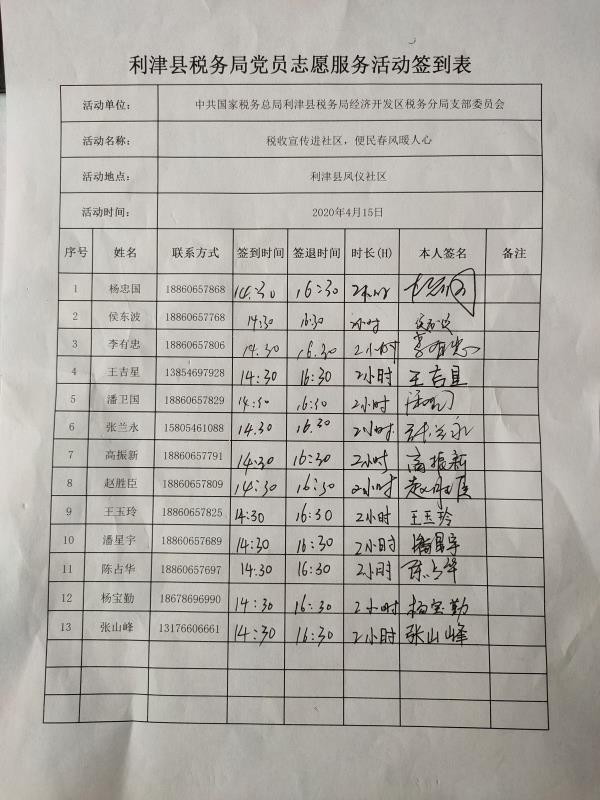 利津县税务局党员志愿服务活动签到表
活动单位： 中共国家税务总局利津县税务局经济开发区税务分局支部委员会
活动名称： 税收宣传进社区，便民春风暖人心
活动地点： 利津县凤仪社区
活动时间： 2020年4月15日
序号 姓名 联系方式 签到时间 签退时间 时长(H) 本人签名 备注
1 杨忠国 18860657868 14:30 16:30 2小时
2 侯东波 18860657768 14:30 16:30 2小时
3 李有忠 18860657806 14:30 16:30 2小时 李有忠
4 王吉星 13854697928 14:30 16:30 2小时 王吉星
5 潘卫国 18860657829 14:30 16:30 2小时
6 张兰永 15805461088 14:30 16:30 2小时 张兰永
7 高振新 18860657791 14:30 16:30 2小时 高振新
8 赵胜臣 18860657809 14:30 16:30 2小时 赵胜臣
9 王玉玲 18860657825 14:30 16:30 2小时 王玉玲
10 潘星宇 18860657689 14:30 16:30 2小时 潘星宇
11 陈占华 18860657697 14:30 16:30 2小时 陈占华
12 杨宝勤 18678696990 14:30 16:30 2小时 杨宝勤
13 张山峰 13176606661 14:30 16:30 2小时 张山峰